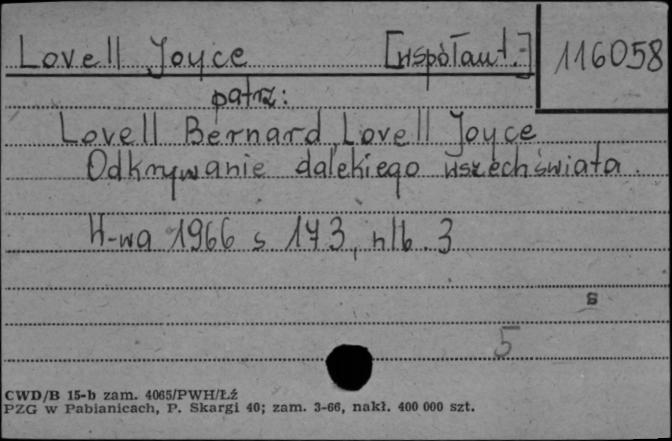 Lovell Joyce [współaut.-] 116058
patrz:
Lovell Bernard, Lovell Joyce
Odkrywanie dalekiego wszechświata.
W-wa 1966 s 173, nlb. 3
s
5
CWD/B 15-b zam. 4065/PWH/Łż
PZG w Pabianicach, P. Skargi 40; zam. 3-66, nakł. 400 000 szt.